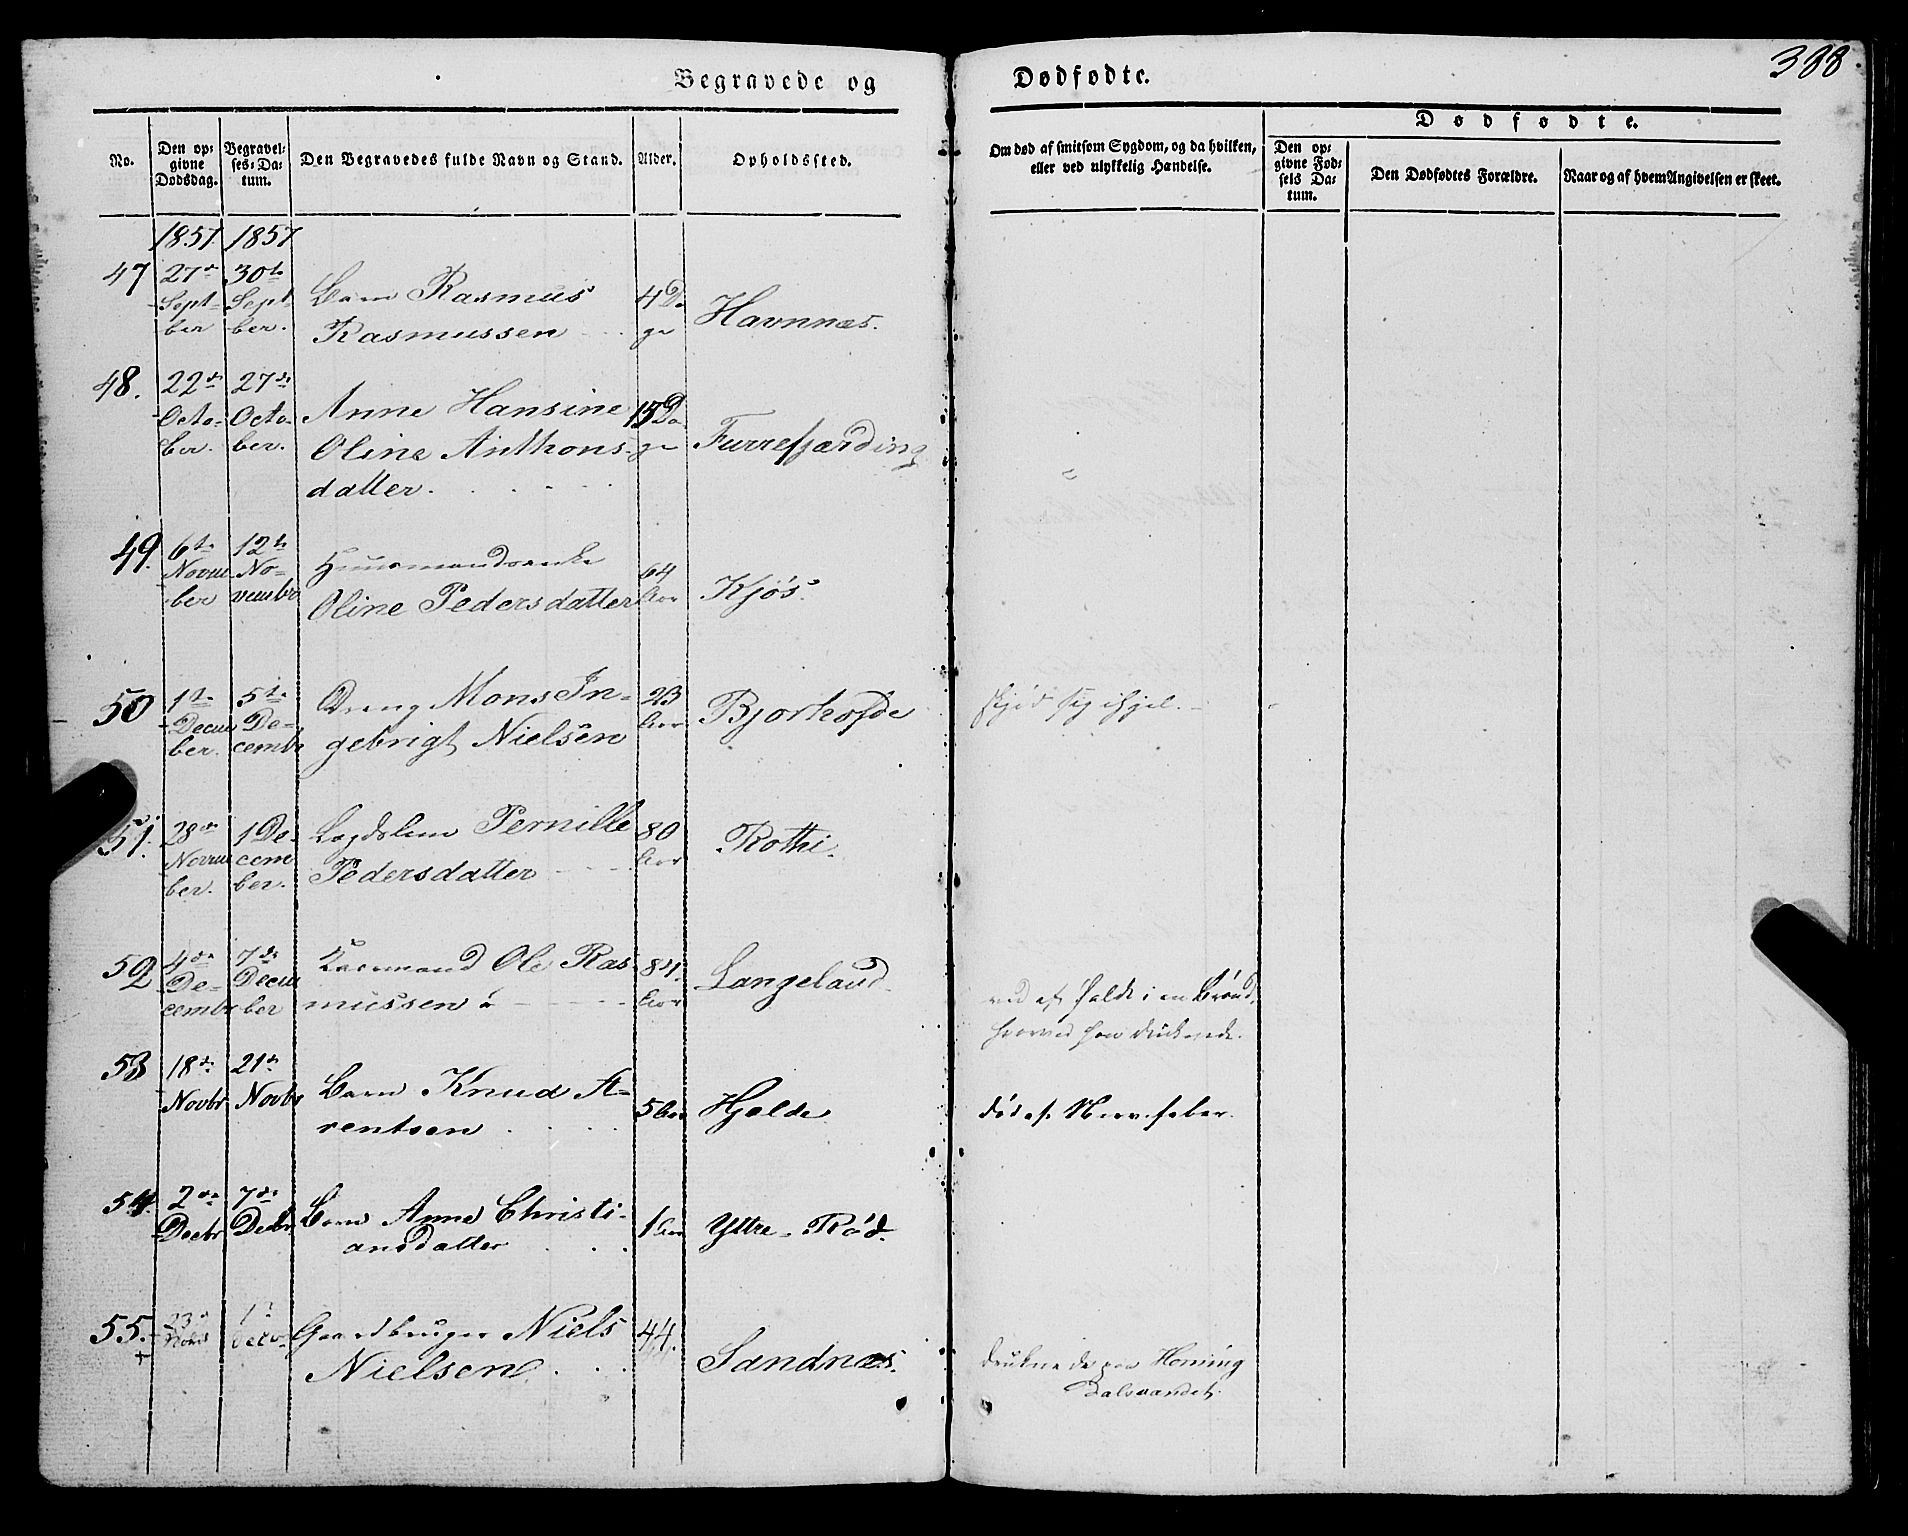 388.
Begravede og Dødfødte.
No. Den opgivne Dødsdag. Begravelses-Datum. Den Begravedes fulde Navn og Stand. Alder. Opholdssted. Om død af smitsom Sygdom, og da hvilken, eller ved ulykkelig Hændelse.
Dødfødte.
Den opgivne Fødsels Datum. Den Dødfødtes Forældre. Naar og af hvem Angivelsen er skeet.
1857. 1857
47 27de Septber 30te Septber. Barn Rasmus Rasmussen 4 Dage Havnnæs.
48. 22de October. 27de October. Anne Hansine Oline Anthonsdatter. 15 Dage Furrefjærding
49. 6te November 12te November Huusmandsenke Oline Pedersdatter 64 Aar Kjøs.
50 1te December. 5te December Dreng Mons Ingebrigt Nielsen 23 Aar Bjorhofde skjød sig ihjel.
51. 28de November. 1 December. Lægdslem Pernille Pedersdatter 80 Aar Rothi.
52 4de December 7de December Kaarmand Ole Rasmussen 84. Aar Langeland. ved at falde i en Brønd, hvorved han druknede.
53 18de Novbr 21de Novbr Barn Knud Arentsen 5 Aar Hjelde død af Nervefeber.
54. 2den Decbr 7de Decbr. Barn Anne Christiansdatter 1 Aar Yttre-Rød.
55. 23de 1te Gaardbruger Niels Nielsen. 44. Sandnæs. druknede paa Horning dalsvandet.